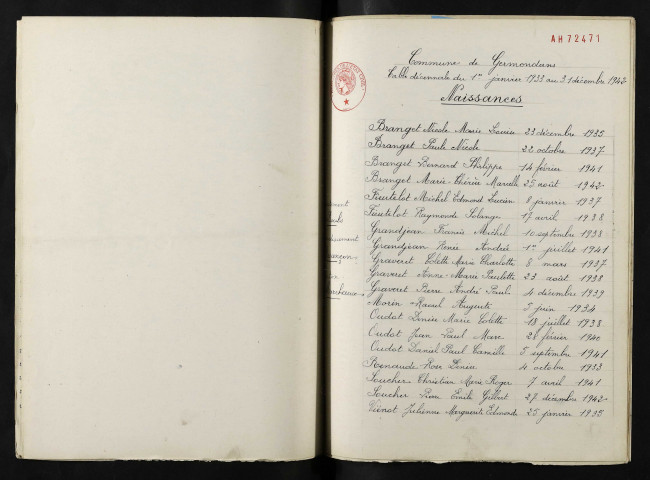 AH 72471
Commune de Germondans
Table décennale du 1er janvier 1933 au 31 décembre 1942
Naissances
Branget Nicole Marie Louise 23 décembre 1935
Branget Paule Nicole 22 octobre 1937
Branget Bernard Philippe 14 février 1941
Branget Marie-Thérèse Marcelle 25 août 1942
Faitelot Michel Edmond Lucien 8 janvier 1937
Faitelot Raymonde Solange 17 avril 1938
Grandjean Francis Michel 10 septembre 1938
Grandjean Renée Andrée 1er juillet 1941
Graveret Colette Marie Charlotte 8 mars 1937
Graveret Anne-Marie Paulette 23 août 1938
Graveret Pierre André Paul 4 décembre 1939
Morin Raoul Auguste 5 juin 1934
Oudot Denise Marie Colette 18 juillet 1938
Oudot Jean Paul Marc 28 février 1940
Oudot Daniel Paul Camille 5 septembre 1941
Renaude Rose Denise 4 octobre 1933
Soucher Christian Marie Roger 7 avril 1941
Soucher Emile Gilbert 27 décembre 1942
Viénot Julienne Marguerite Edmonde 25 janvier 1935